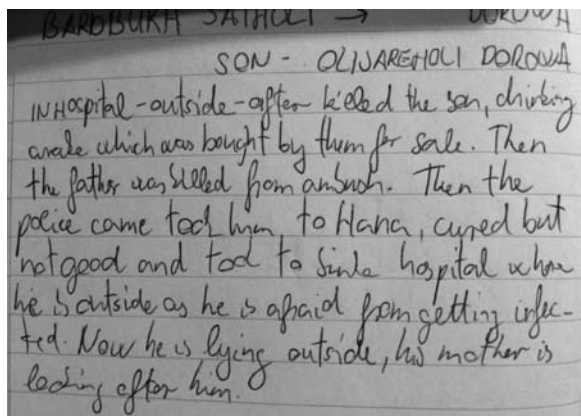 BARDBURA SATHOLI → DOROWA
SON - OLIJAREHOLI DOROWA
IN Hospital - outside - after killed the son, drinking
arake which was bought by them for sale. Then
the father was killed from ambush. Then the
police came took him, to Hana, cured but
not good and took to Sinle hospital where
he is outside as he is afraid from getting infec-
ted. Now he is lying outside, his mother is
looking after him.